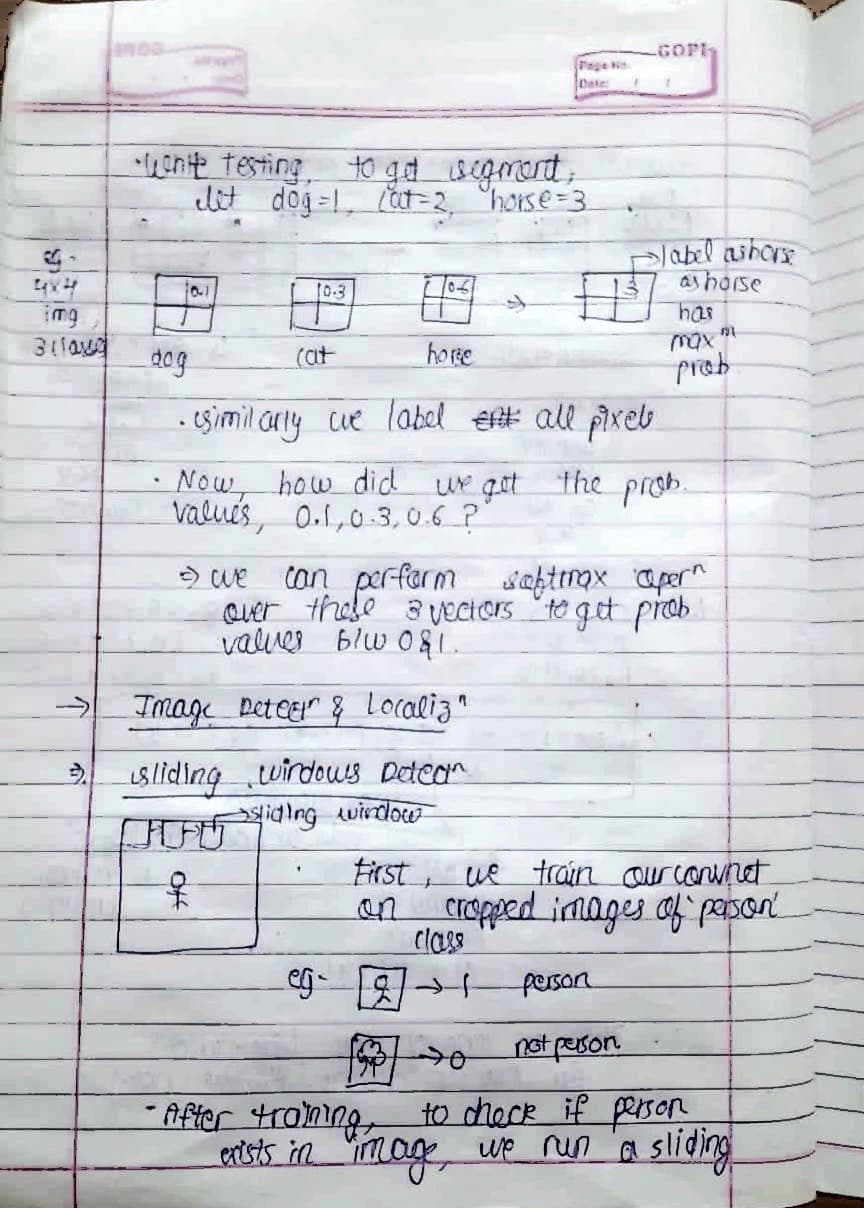 GOPI
Page No.
Date: / /
• While testing, to get segment,
let dog = 1, Cat = 2, horse = 3
eg -
4x4
img,
3 classes
0.1
dog
0.3
cat
0.6
horse
⇒
3
→ label as horse
as horse
has
max^m
prob
• similarly we label all pixels
• Now, how did we get the prob.
values, 0.1, 0.3, 0.6 ?
⇒ we can perform softmax oper^n
over these 3 vectors to get prob
values b/w 0 & 1.
→ Image Detect^n & Localiz^n
⇒ sliding windows Detec^n
→ sliding window
• First, we train our convnet
on cropped images of 'person'
class
eg - → 1 person
→ 0 not person
- After training, to check if person
exists in image, we run a sliding